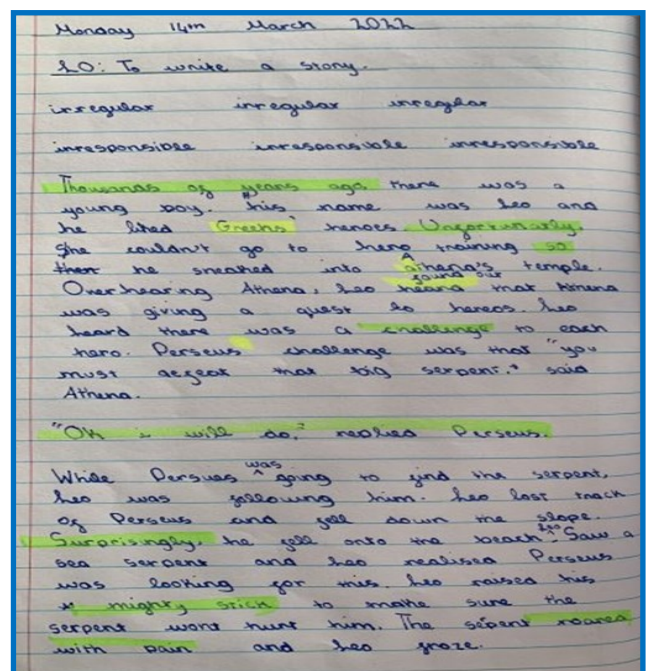 Monday 14th March 2022
LO: To write a story.
irregular irregular irregular
irresponsible irresponsible irresponsible
Thousands of years ago there was a
young boy. his name was Leo and
he liked Greeks heroes. Unfortunatly,
he couldn't go to hero training so
he sneaked into Athena's temple.
found out
Overhearing Athena, Leo heard that Athena
was giving a quest to hereos. Leo
heard there was a challenge to each
hero. Perseus challenge was that "you
must defeat that big serpent." said
Athena.
"Ok i will do," replied Perseus.
was
While Persues going to find the serpent,
Leo was following him. Leo lost track
of Perseus and fell down the slope.
Leo
Surprisingly, he fell onto the beach. Saw a
sea serpent and Leo realised Perseus
was looking for this. Leo raised his
mighty stick to make sure the
serpent wont hurt him. The sepent roared
with pain and Leo froze.